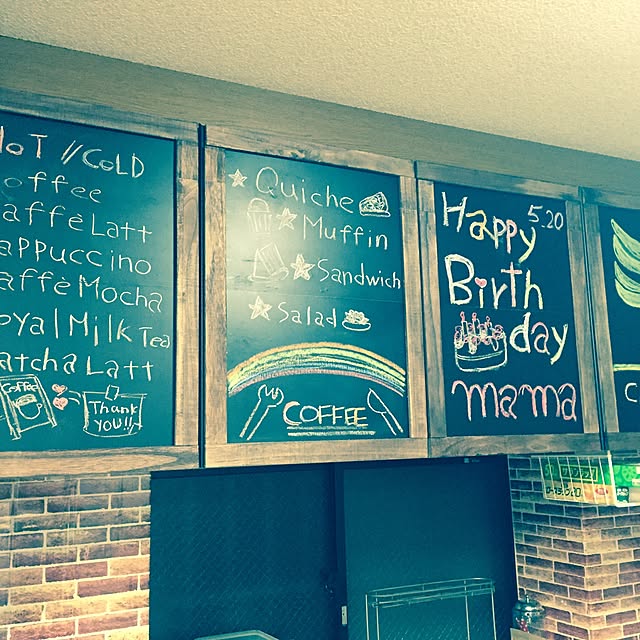 HOT // COLD
Coffee
Caffè Latt
Cappuccino
Caffè Mocha
Royal Milk Tea
Matcha Latt
Coffee
Thank
YOU!!
Quiche
Muffin
Sandwich
Salad
COFFEE
5.20
Happy
Birth
day
mama
C